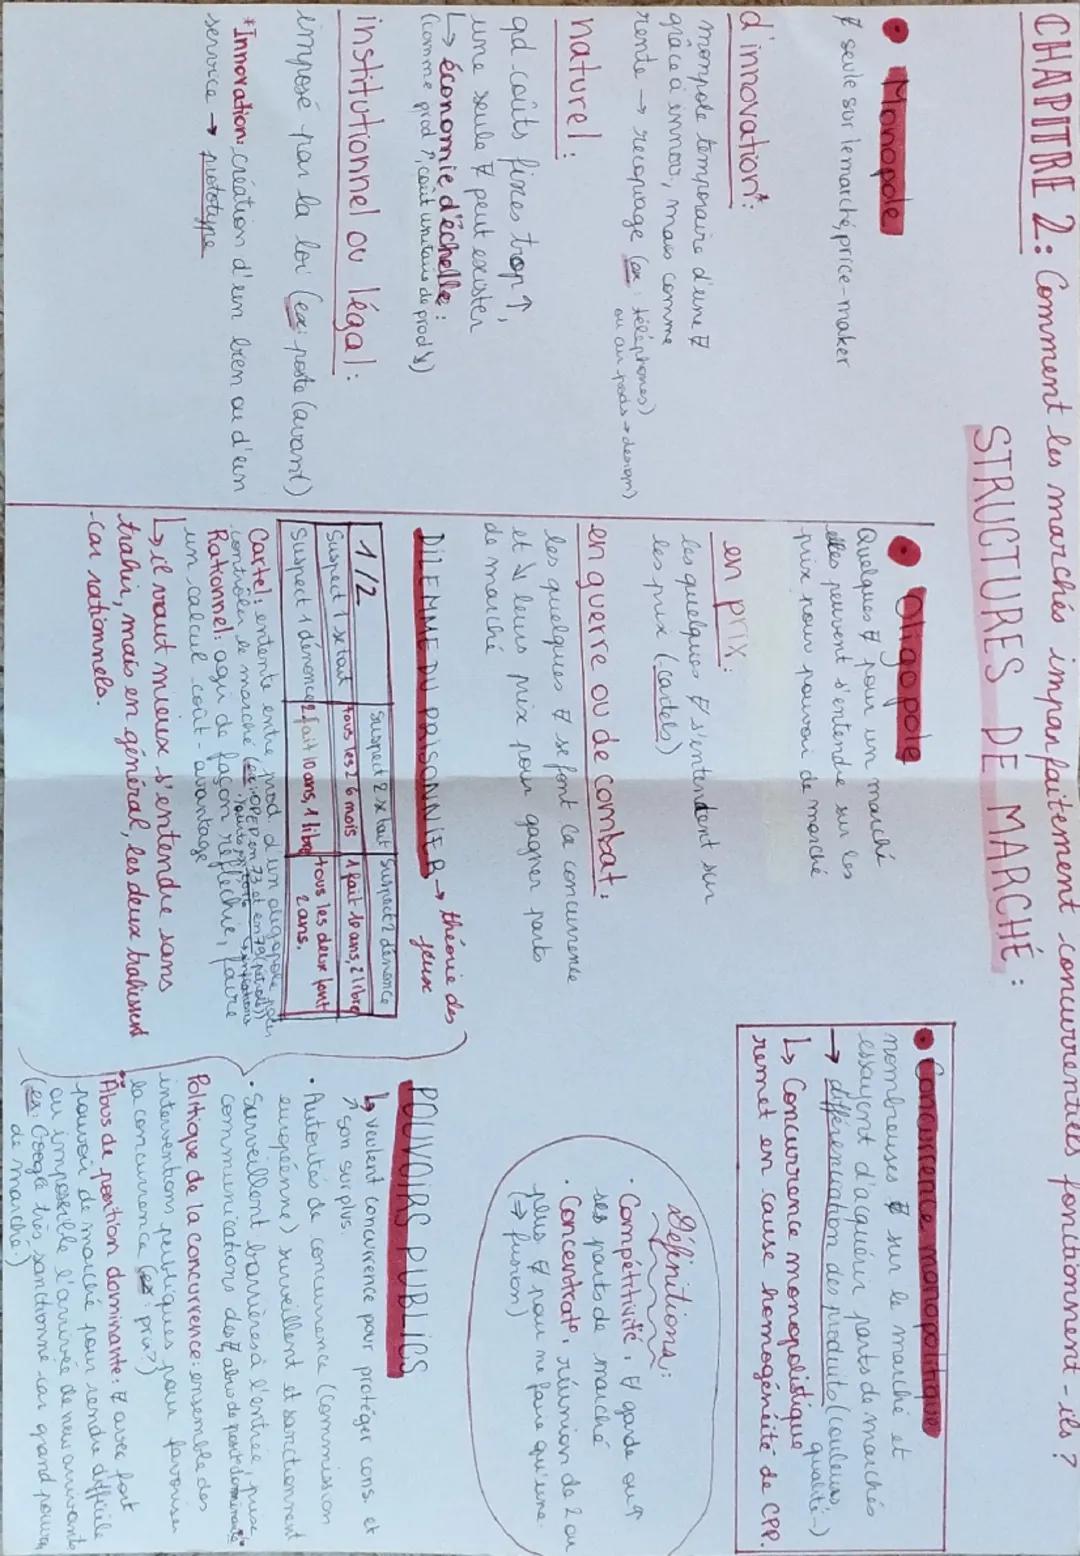 CHAPITRE 2: Comment les marchés imparfaitement concurrentiels fonctionnent-ils ?
STRUCTURES DE MARCHÉ :
• Monopole
seule sur le marché, price-maker
d'innovation*:
monopole temporaire d'une
grâce à innov, mais comme
rente → recopiage (ex: téléphones)
ou au poids → denom)
naturel:
qd coûts fixes trop ↑,
une seule peut exister
↳ économie d'échelle:
(comme prod ↑, coût unitaire de prod ↘)
institutionnel ou légal:
imposé par la loi (ex: poste (avant)
*Innovation: création d'un bien ou d'un
service → prototype
• Oligopole
Quelques pour un marché
elles peuvent s'entendre sur les
prix pour pouvoir de marché
en prix:
les quelques s'entendent sur
les prix (cartels)
en guerre ou de combat:
les quelques se font la concurrence
et ↘ leurs prix pour gagner parts
de marché
DILEMME DU PRISONNIER → théorie des
jeux
1/2 Suspect 2 se tait Suspect 2 dénonce
Suspect 1 se tait tous les 2 6 mois 1 fait 10 ans, 2 libre
Suspect 1 dénonce 2 fait 10 ans, 1 libre tous les deux font
2 ans.
Cartel: entente entre prod d'un oligopole pour
contrôler le marché (ex: OPEP en 73 et en 79 (pétrole))
Rationnel: agir de façon réfléchie, faire
un calcul coût-avantage
↳ il vaut mieux s'entendre sans
trahir, mais en général, les deux trahissent
car rationnels.
• Concurrence monopolitique
nombreuses sur le marché et
essayent d'acquérir parts de marchés
→ différenciation des produits (couleurs,
qualité..)
↳ Concurrence monopolistique
remet en cause homogénéité de CPP.
Définitions:
• Compétitivité: garde ou ↑
ses parts de marché
• Concentrato: réunion de 2 ou
plus pour ne faire qu'une
(→ fusion)
POUVOIRS PUBLICS
↳ veulent concurrence pour protéger cons. et
↗ son surplus.
• Autorités de concurrence (commission
européenne) surveillent et sanctionnent
• Surveillent barrières à l'entrée, prix
communications des, abus de posit dominante*
Politique de la concurrence: ensemble des
interventions publiques pour favoriser
la concurrence (ex: prix?)
*Abus de position dominante: avec fort
pouvoir de marché pour rendre difficile
ou impossible l'arrivée de new arrivants
(ex: Google très sanctionné car grand pouvoir
de marché.)